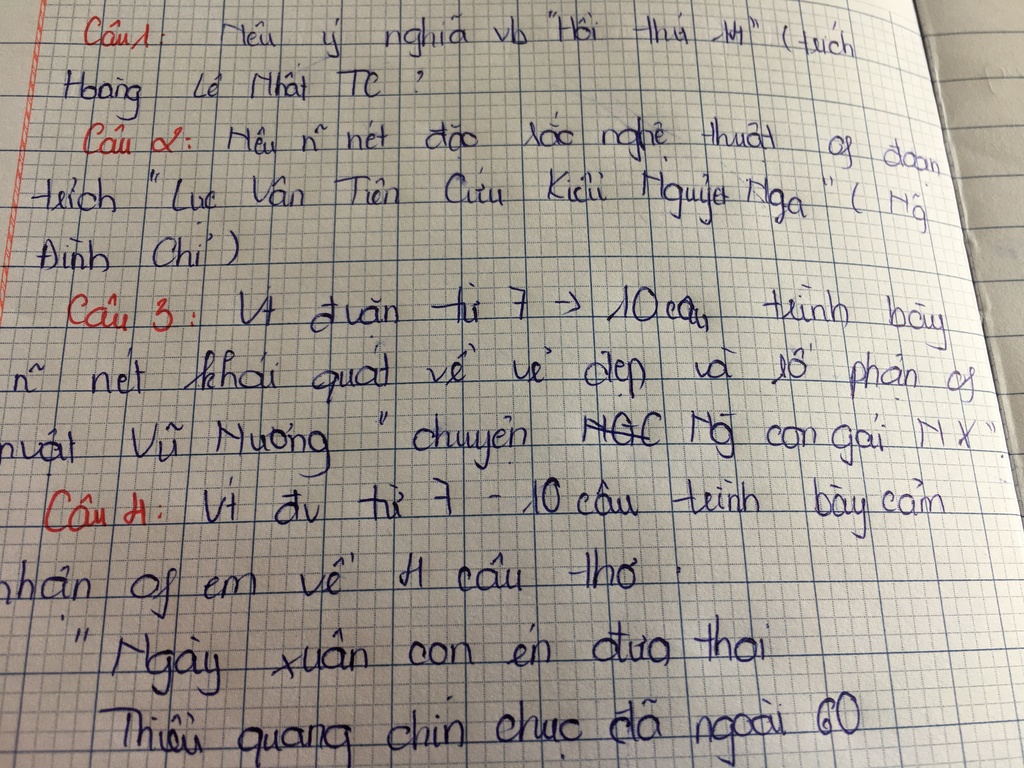 Câu 1: Nêu ý nghĩa vb "Hồi thứ 14" (trích
Hoàng Lê Nhất TC ?
Câu 2: Nêu n~ nét đặc sắc nghệ thuật of đoạn
trích "Lục Vân Tiên Cứu Kiều Nguyệt Nga" ( Ng
Đình Chỉ )
Câu 3: Vt đvăn từ 7 → 10 câu trình bày
n~ nét khái quát về vẻ đẹp và số phận of
nvật Vũ Nương " chuyện Ng con gái NX"
Câu 4: Vt đv từ 7 - 10 câu trình bày cảm
nhận of em về 4 câu thơ
"Ngày xuân con én đưa thoi
Thiều quang chín chục đã ngoài 60